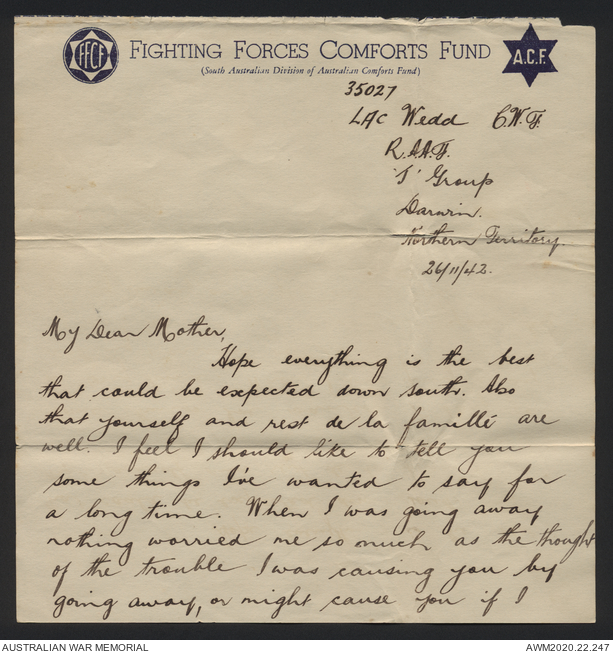 FFCF
FIGHTING FORCES COMFORTS FUND
A.C.F.
(South Australian Division of Australian Comforts Fund)
35027
LAC Wedd C.W.F.
R.A.A.F.
'J' Group
Darwin.
Northern Territory.
26/11/42.
My Dear Mother,
Hope everything is the best
that could be expected down south. Also
that yourself and rest de la famillé are
well. I feel I should like to tell you
some things I've wanted to say for
a long time. When I was going away
nothing worried me so much as the thought
of the trouble I was causing you by
going away, or might cause you if I
AUSTRALIAN WAR MEMORIAL
AWM2020.22.247